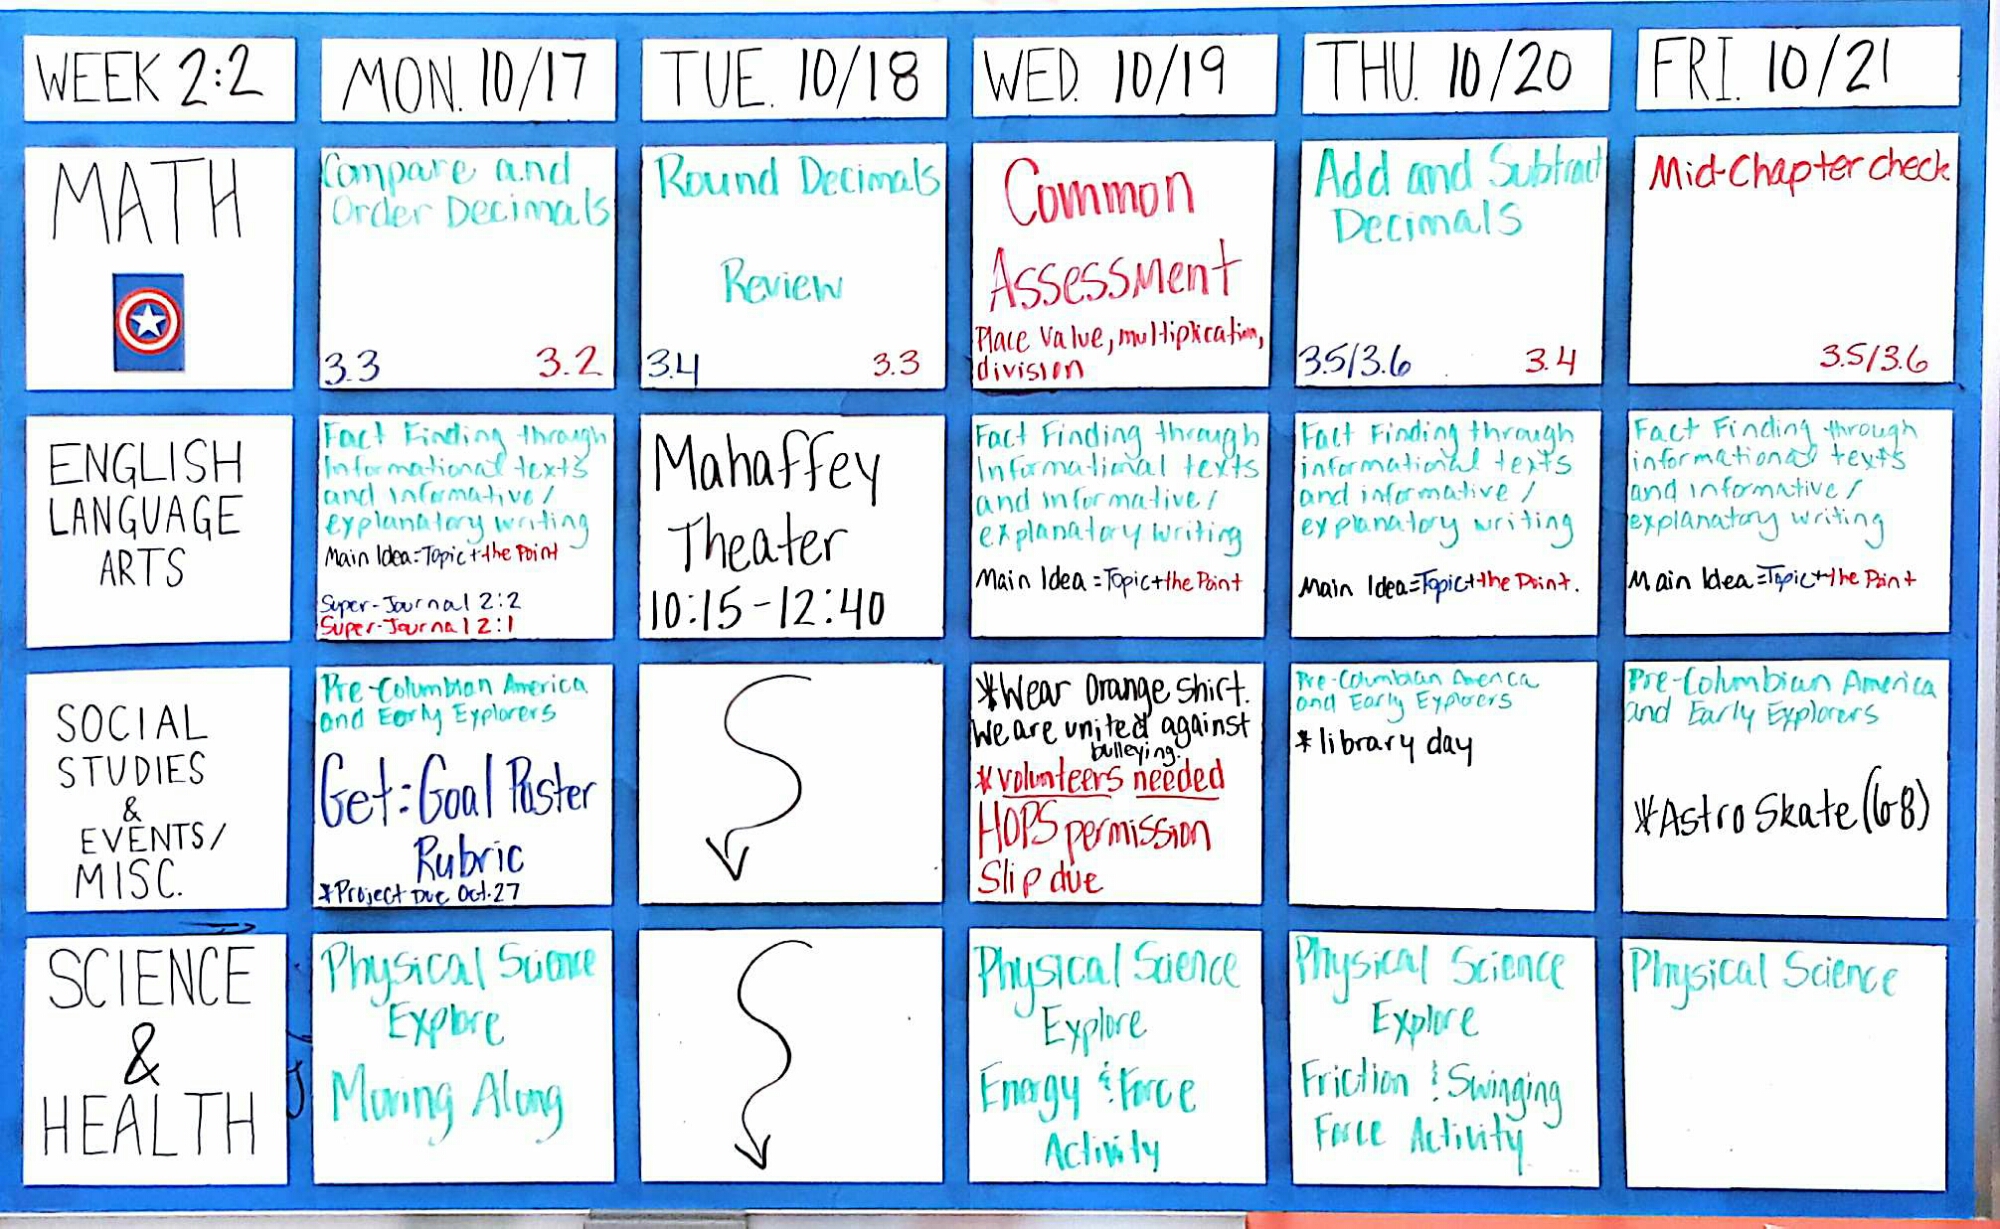 WEEK 2:2
MON. 10/17
TUE. 10/18
WED. 10/19
THU. 10/20
FRI. 10/21
MATH
Compare and
Order Decimals
3.3 3.2
Round Decimals
Review
3.4 3.3
Common
Assessment
Place Value, multiplication,
division
Add and Subtract
Decimals
3.5/3.6 3.4
Mid-Chapter check
3.5/3.6
ENGLISH
LANGUAGE
ARTS
Fact Finding through
Informational texts
and informative/
explanatory writing
Main Idea=Topic+the Point
Super-Journal 2:2
Super-Journal 2:1
Mahaffey
Theater
10:15-12:40
Fact Finding through
Informational texts
and informative/
explanatory writing
Main Idea=Topic+the Point
Fact Finding through
informational texts
and informative/
explanatory writing
Main Idea=Topic+the Point.
Fact Finding through
informational texts
and informative/
explanatory writing
Main Idea=Topic+the Point
SOCIAL
STUDIES
&
EVENTS/
MISC.
Pre-Columbian America
and Early Explorers
Get:Goal Poster
Rubric
*Project Due Oct.27
*Wear Orange shirt.
We are united against
bulleying.
*volunteers needed
HOPS permission
Slip due
Pre-Columbian America
and Early Explorers
*library day
Pre-Columbian America
and Early Explorers
*Astro Skate (6-8)
SCIENCE
&
HEALTH
Physical Science
Explore
Moving Along
Physical Science
Explore
Energy & Force
Activity
Physical Science
Explore
Friction & Swinging
Force Activity
Physical Science